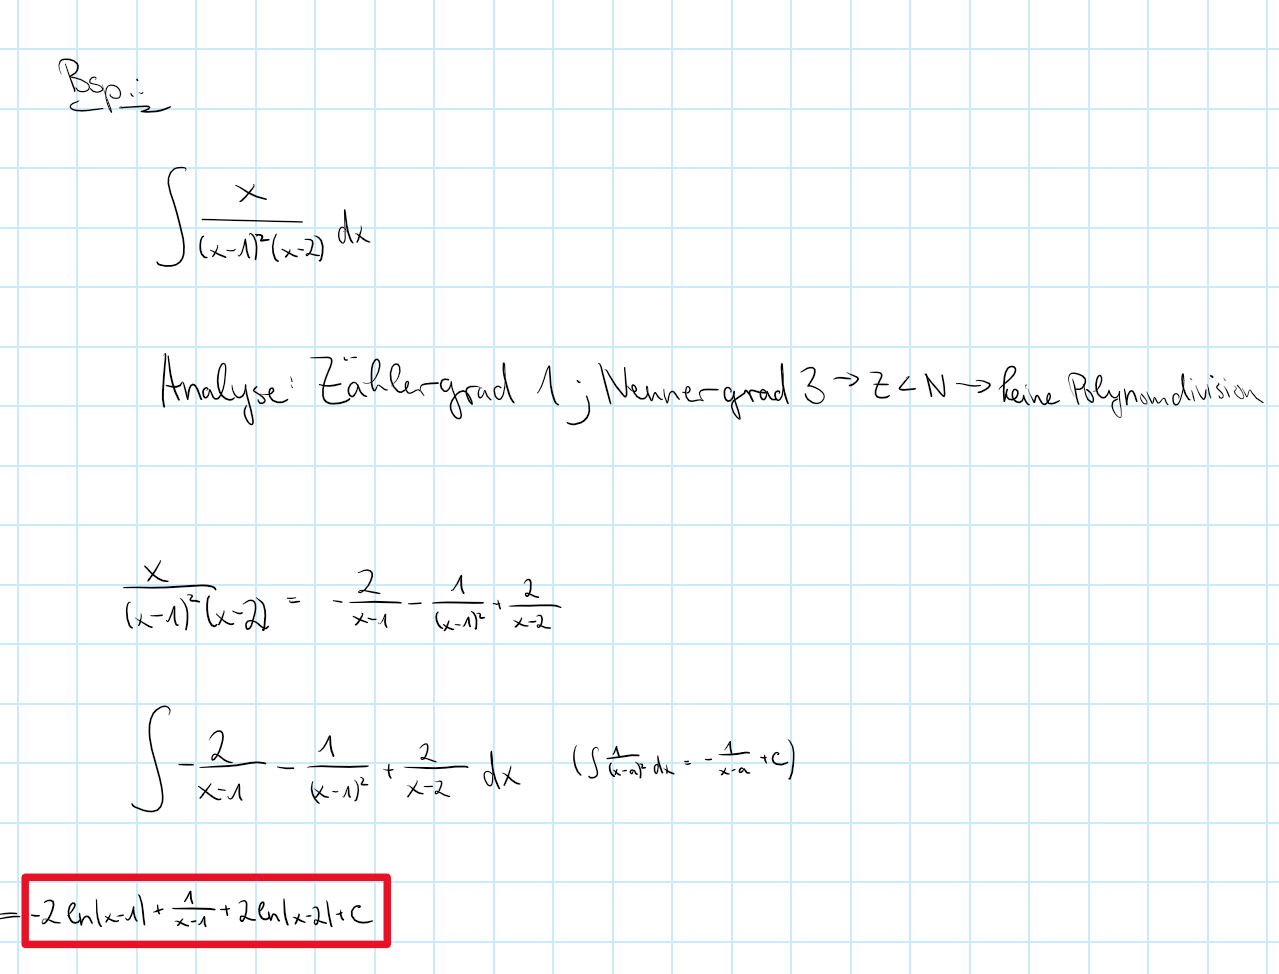 Bsp.:
∫ x/((x-1)²(x-2)) dx
Analyse: Zählergrad 1 ; Nennergrad 3 → Z < N → keine Polynomdivision
x/((x-1)²(x-2)) = - 2/(x-1) - 1/(x-1)² + 2/(x-2)
∫ - 2/(x-1) - 1/(x-1)² + 2/(x-2) dx (∫ 1/(x-a)² dx = - 1/(x-a) + C)
= -2 ln|x-1| + 1/(x-1) + 2 ln|x-2| + C